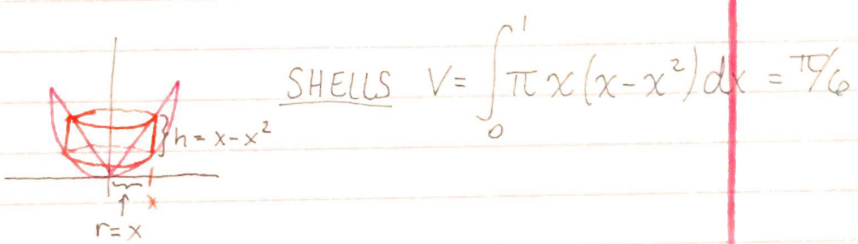 SHELLS V = ∫₀¹ π x (x - x²) dx = π/6
h = x - x²
x
r = x